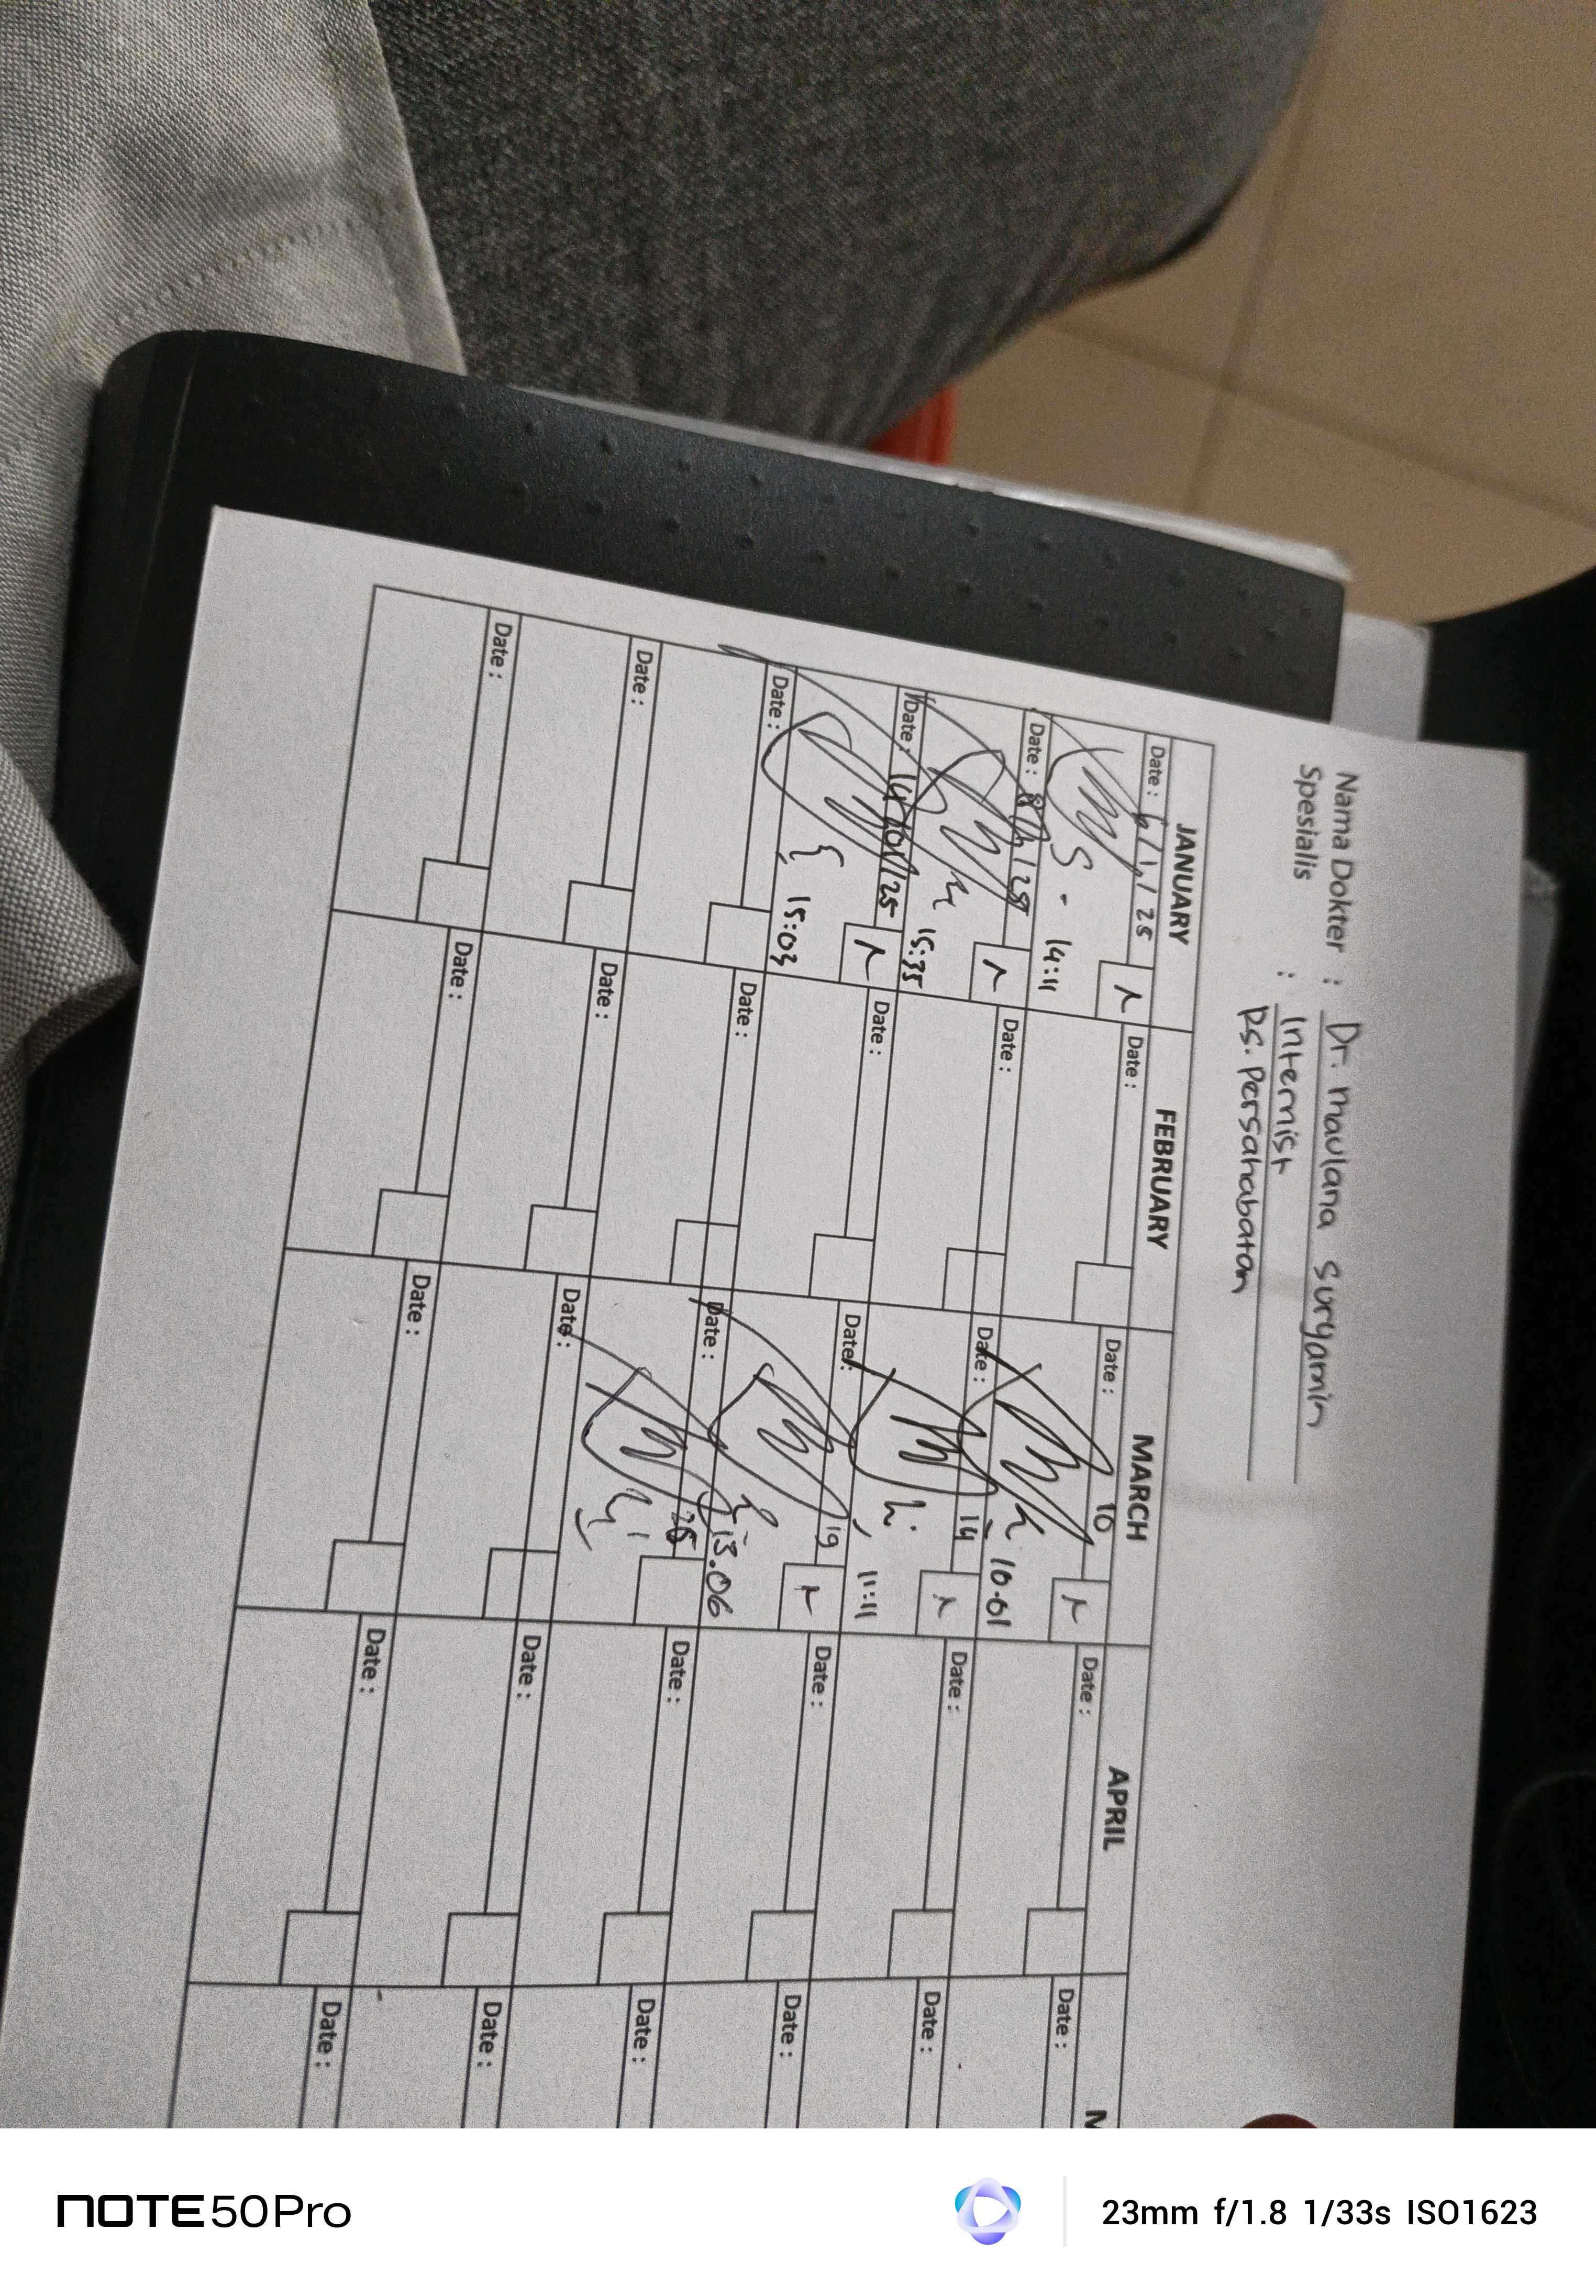 Nama Dokter : Dr. Maulana Suryamin
Spesialis : Internist
RS. Persahabatan
JANUARY FEBRUARY MARCH APRIL M
Date : 6/1/25 Date : Date : 10 Date : Date :
14:11 10.01
Date : 8/1/25 Date : Date : 14 Date : Date :
15:35 11:11
Date : 14/01/25 Date : Date : 19 Date : Date :
15:03 13.06
Date : Date : Date : Date : Date :
Date : Date : Date : Date : Date :
Date : Date : Date : Date : Date :
NOTE50Pro
23mm f/1.8 1/33s ISO1623